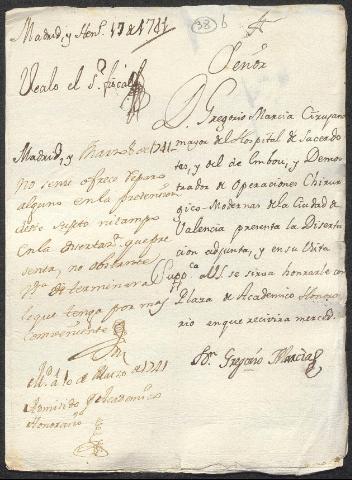 Madrid, y Hen.º 17 de 1741
38 b
Vealo el S.r fiscal
Señor
D. Gregorio Marcia Cirujano
mayor del Hospital de Sacerdo
tes, y del de Embou, y Demos
trador de Operaciones Chirur
gico-Modernas de la Ciudad de
Valencia presenta la Diserta
cion adjunta, y en su vista
Supp.ca a V.S. se sirva honrarle con
Plaza de Academico Honora
rio en que recivira merced.
D.n Gregorio Marcia
Madrid, y Marzo 8 de 1741
No se me ofrece reparo
alguno en la pretension
de este sugeto ni tampo
en la disertaz.n que pre
senta, no obstante
V.S. determinara
lo que tenga por mas
combeniente
M.d a 10 de Marzo de 1741
Admitido p.r Academico
Honorario